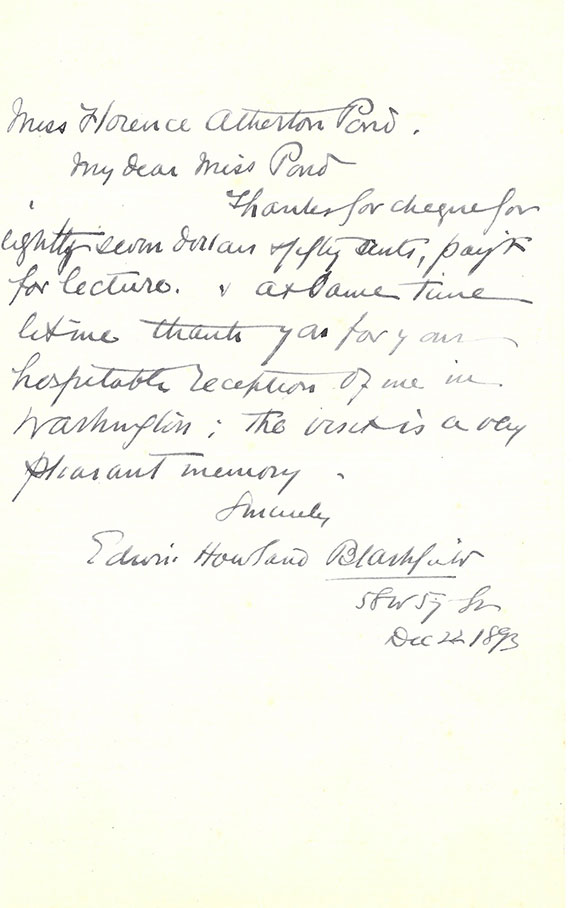 Miss Florence Atherton Pond.
My dear Miss Pond
Thanks for cheque for
eighty seven dollars & fifty cents, pay't
for lecture. & at same time
let me thank you for your
hospitable reception of me in
Washington; the visit is a very
pleasant memory.
Sincerely
Edwin Howland Blashfield
58 W 57 St
Dec 22 1893